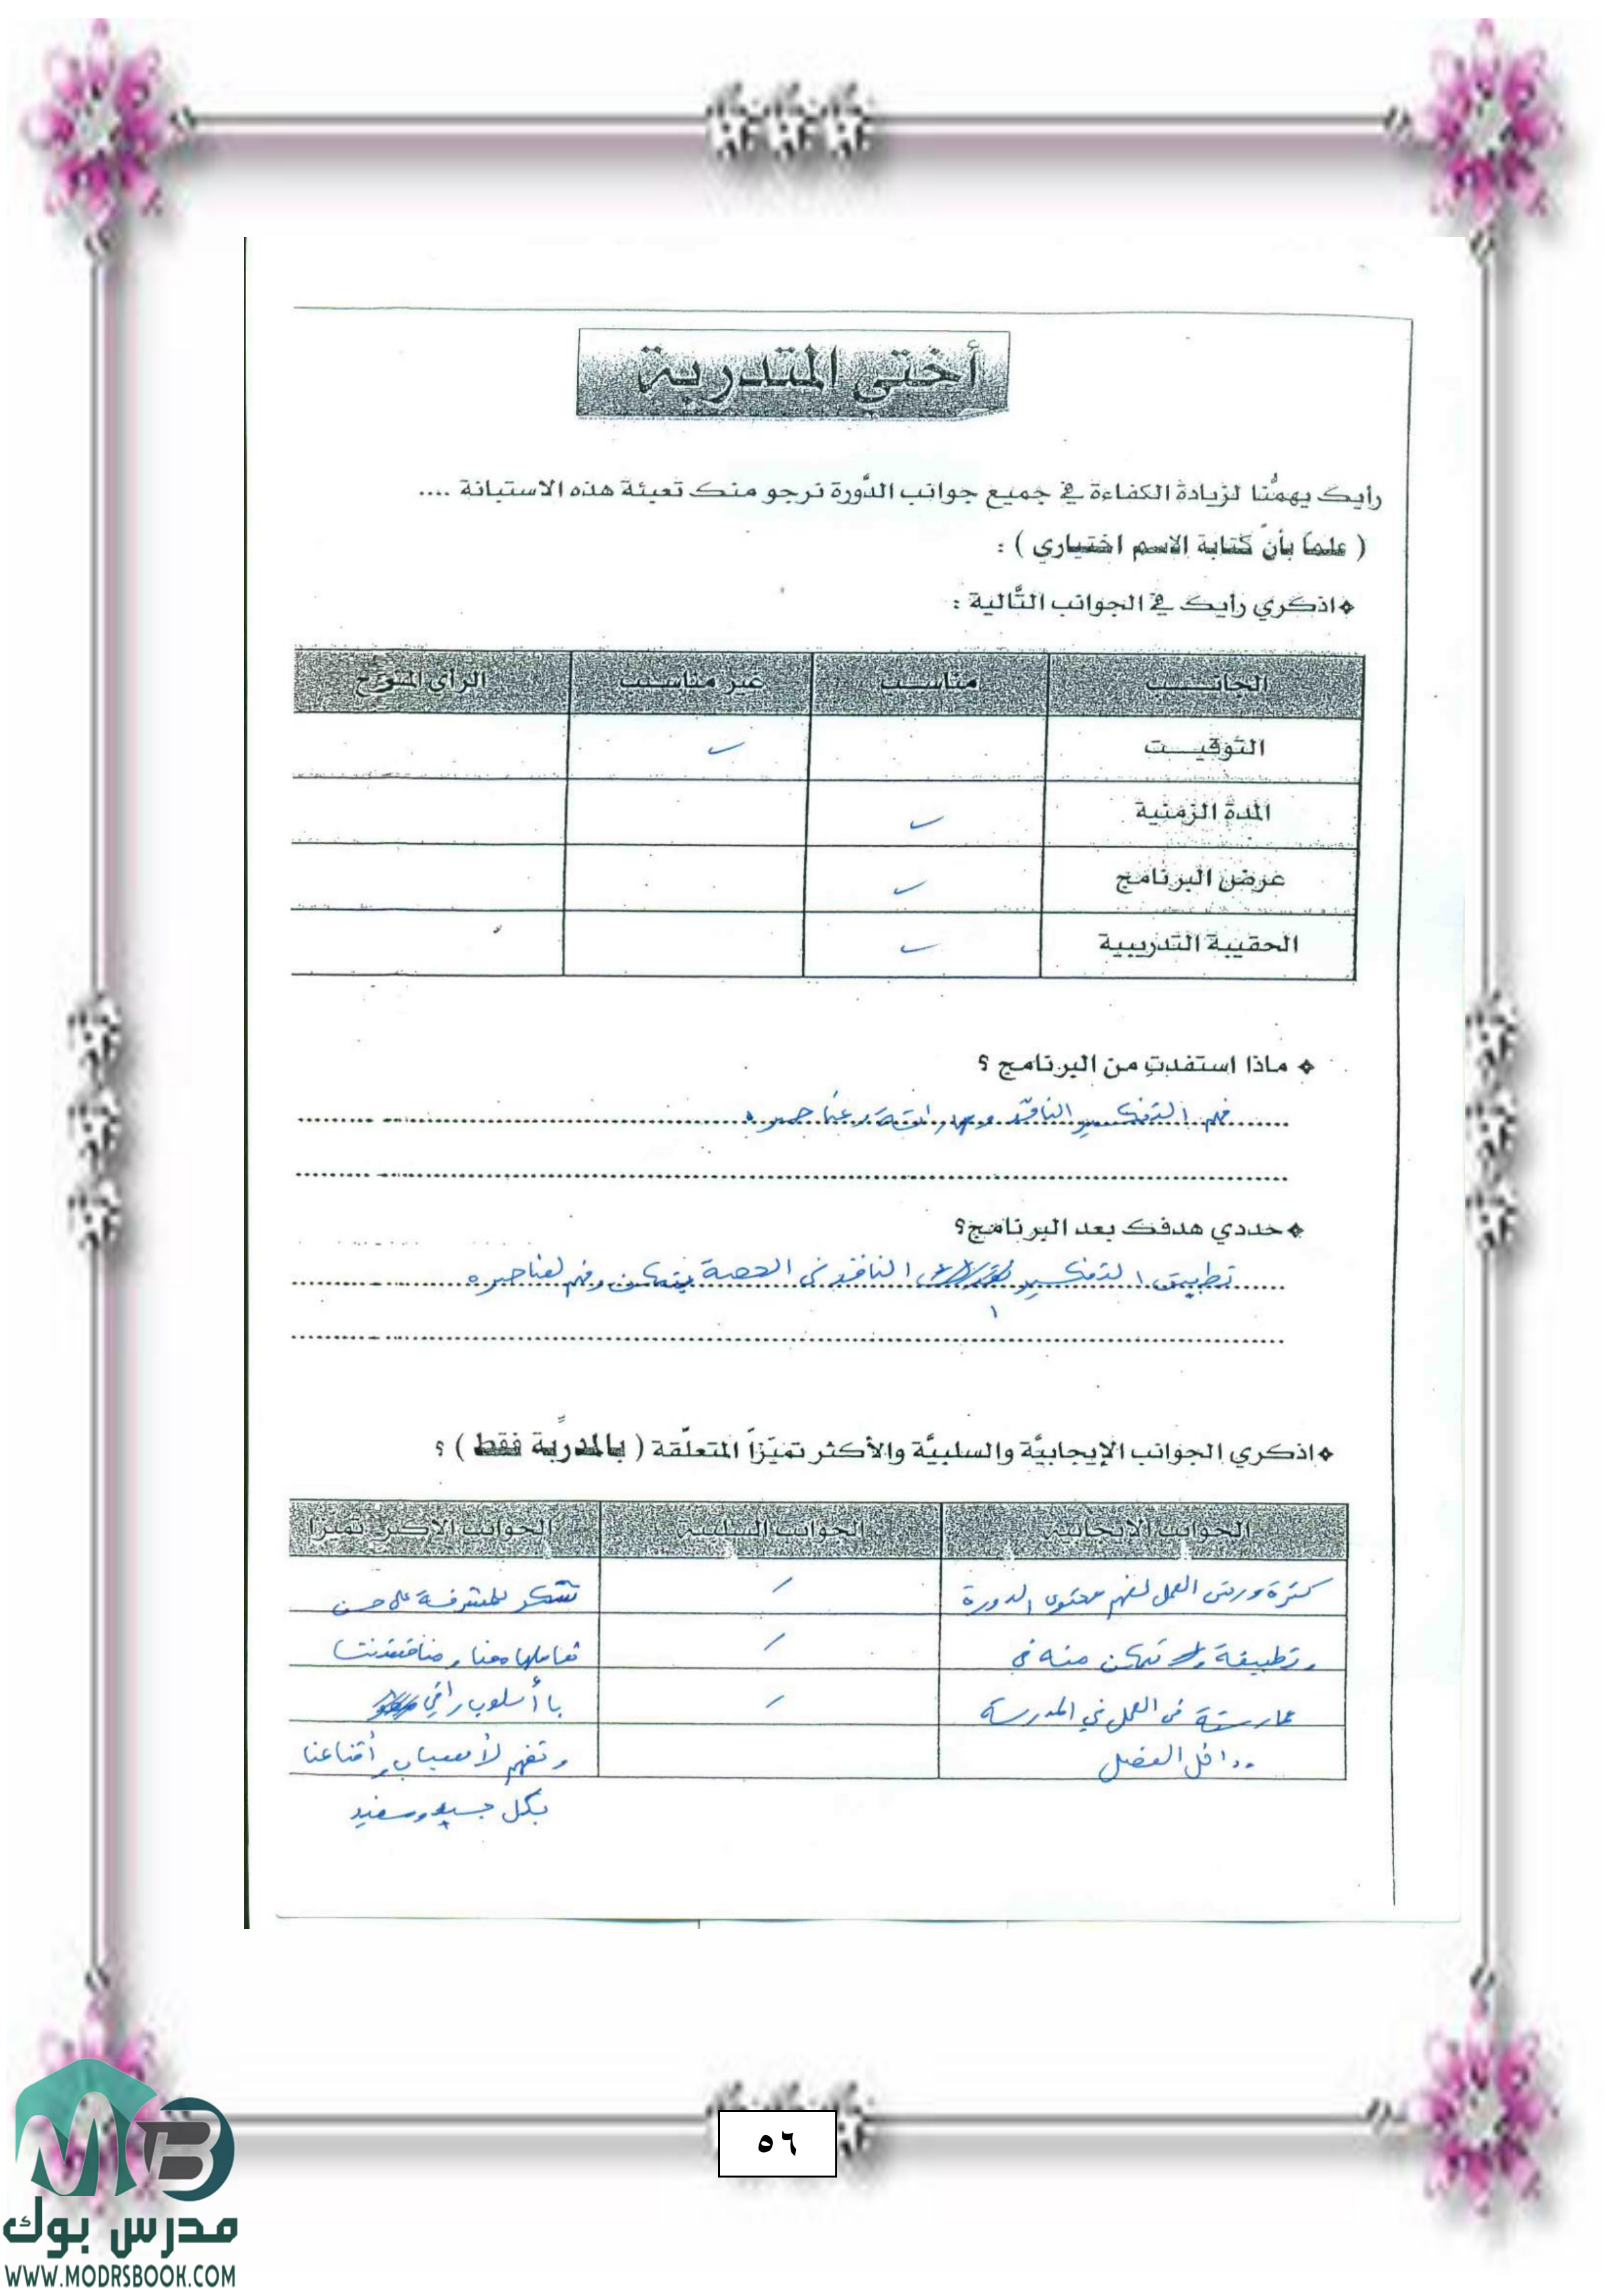 أختي المتدربة
رأيك يهمُّنا لزيادة الكفاءة في جميع جوانب الدَّورة نرجو منك تعبئة هذه الاستبانة ....
( علماً بأنّ كتابة الاسم اختياري ) :
اذكري رأيك في الجوانب التَّالية :
الجانـــب مناســـب غير مناســـب الرأي المقترح
التَّوقيـــت
المدة الزمنية
عرض البرنامج
الحقيبة التدريبية
ماذا استفدتِ من البرنامج ؟
فهم التفكير الناقد ومهاراته وعناصره
حددي هدفك بعد البرنامج؟
تطبيق التفكير الناقد في الحصة بتمكن وفهم لعناصره
اذكري الجوانب الإيجابيَّة والسلبيَّة والأكثر تميّزاً المتعلّقة ( بالمدرِّبة فقط ) ؟
الجوانب الإيجابية الجوانب السلبية الجوانب الأكثر تميزا
كثرة ورش العمل لفهم محتوى الدورة / نشكر المشرفة على حسن
وتطبيقة تمكن منه في / تعاملها معنا ومناقشتنا
ممارستة في العمل في المدرسة / با أسلوب راقي
وداخل الفصل وتفهم لأسباب أقناعنا
بكل جديد ومفيد
٥٦
مدرس بوك
WWW.MODRSBOOK.COM